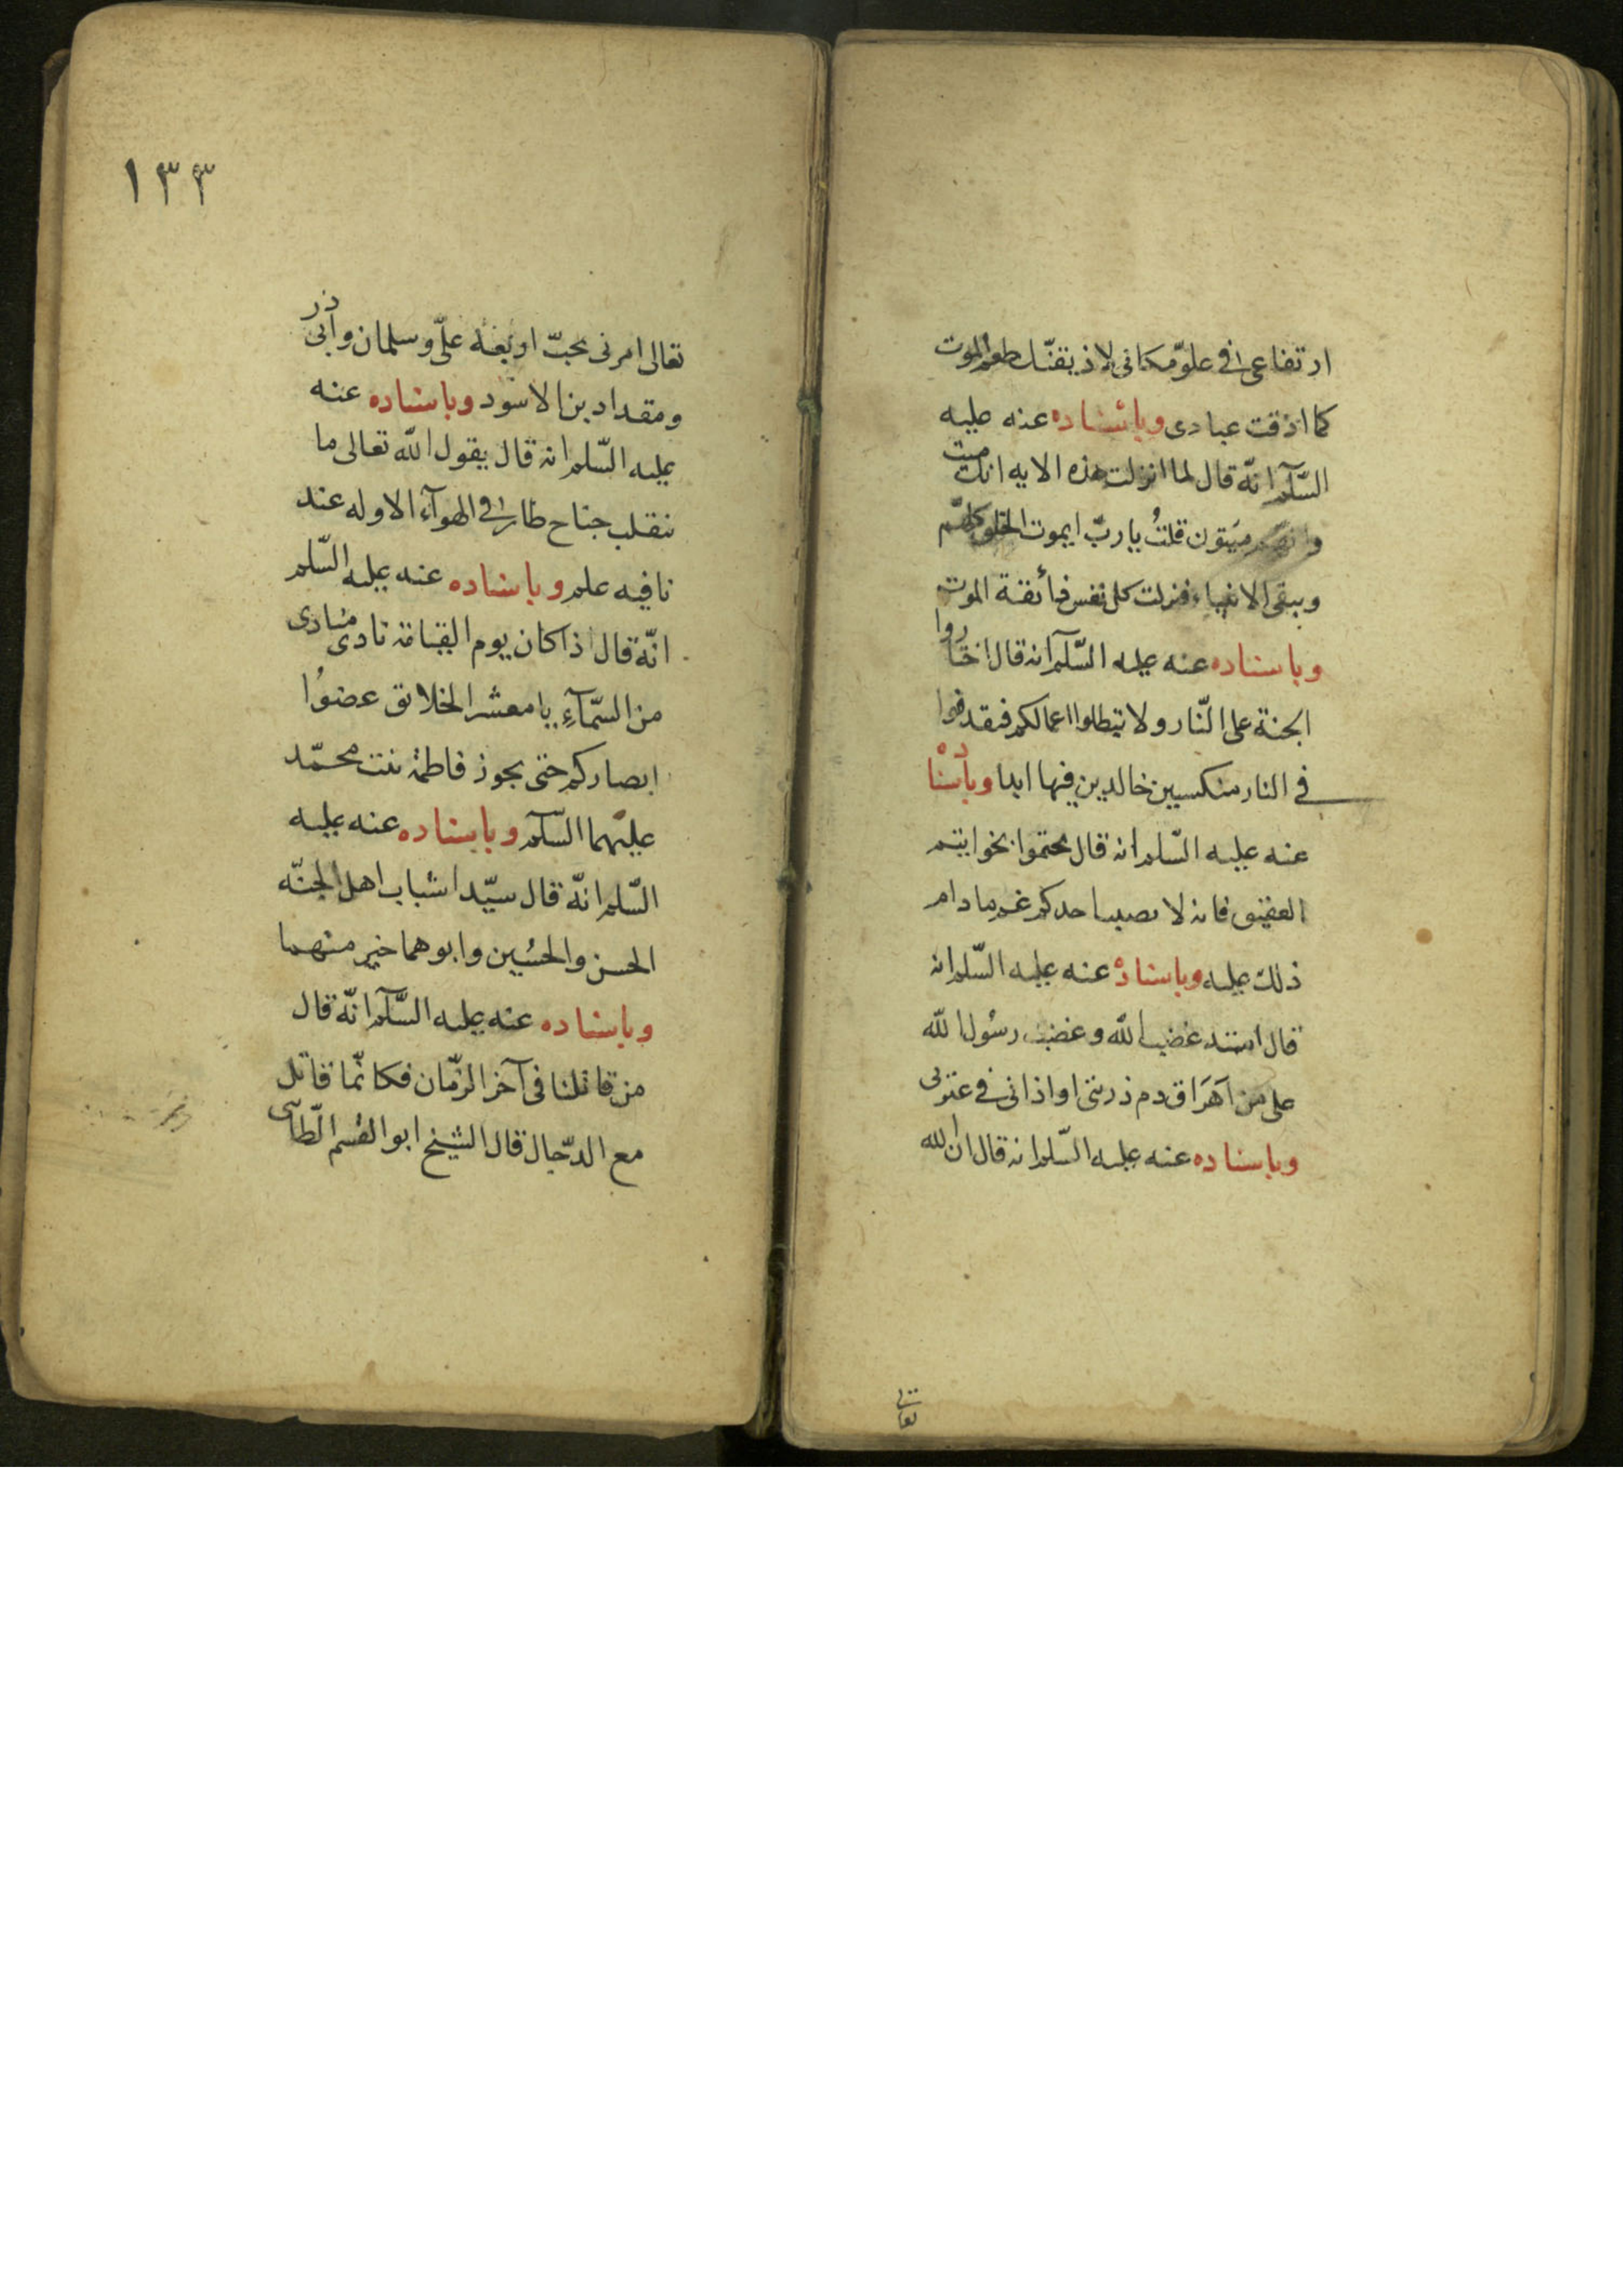 ارتفاعی فی علوّ مکانی لاذیقنّك طعم الموت
کما اذقت عبادی وباسناده عنه علیه
السّلم انّه قال لما انزلت هذه الایه انك میت
وانهم میّتون قلتُ یا ربّ ایموت الخلق کلهم
ویبقی الانبیاء فنزلت کل نفس ذائقة الموت
وباسناده عنه علیه السّلم انه قال اختاروا
الجنة علی النّار ولا تبطلوا اعمالکم فتقذفوا
فی النار منکسین خالدین فیها ابدا وباسناده
عنه علیه السّلم انه قال تختموا بخواتیم
العقیق فانه لا یصیب احدکم غم مادام
ذلك علیه وباسناده عنه علیه السّلم انه
قال اشتد غضب الله وغضب رسُول الله
علی من اَهرَاق دم ذریتی او اذانی فی عترتی
وباسناده عنه علیه السّلم انه قال ان الله
تعالی
١٣٣
تعالی امرنی بحبّ اربعة علیّ وسلمان وابی ذر
ومقداد بن الاسود وباسناده عنه
علیه السّلم انه قال یقول الله تعالی ما
ینقلب جناح طائر فی الهوآء الا وله عند
نا فیه علم وباسناده عنه علیه السّلم
انّه قال اذا کان یوم القیامة نادی منادی
من السّمآءِ یا معشر الخلائق غضوُا
ابصارکم حتی یجوز فاطمة بنت محمّد
علیهما السّلم وباسناده عنه علیه
السّلم انّه قال سیّدا شباب اهل الجنّه
الحسن والحسُین وابوهما خیر منهما
وباسناده عنه علیه السَّلم انّه قال
من قاتلنا فی آخر الزمّان فکانّما قاتل
مع الدّجال قال الشیخ ابو القسم الطّائی